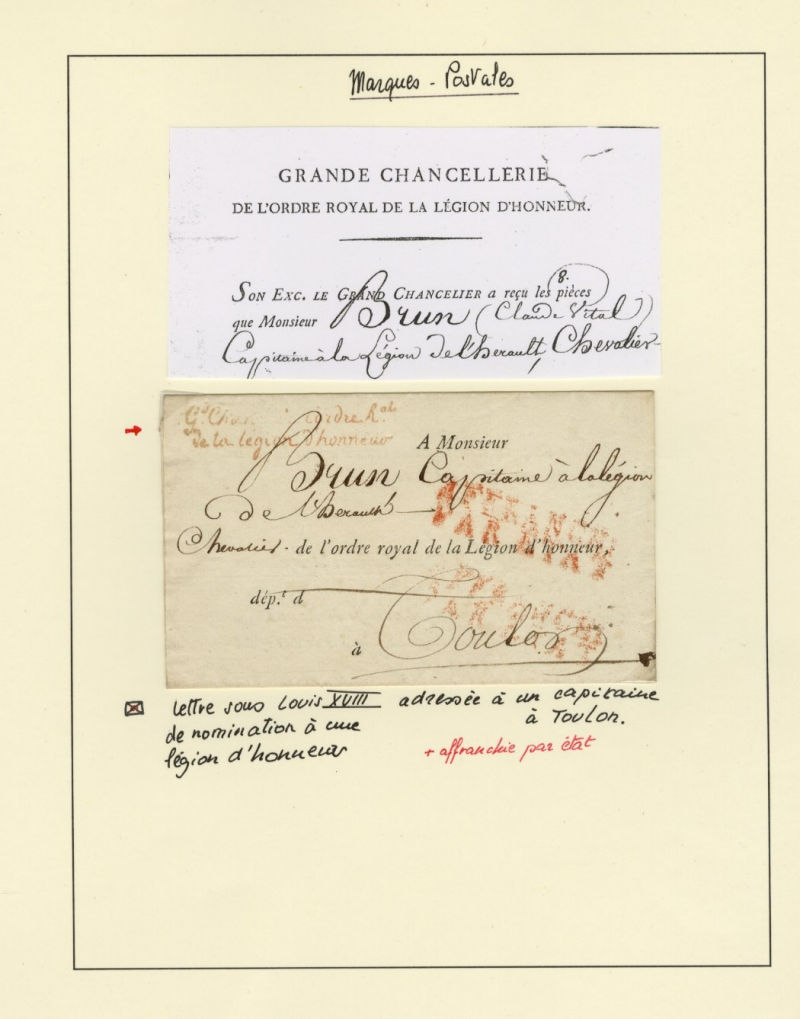 Marques - Postales
GRANDE CHANCELLERIE
DE L'ORDRE ROYAL DE LA LÉGION D'HONNEUR.
SON EXC. LE GRAND CHANCELIER a reçu les 8. pièces
que Monsieur Brun (Claude Vital)
Capitaine à la Légion De l'herault, Chevalier
ordre R.al
de la légion d'honneur
A Monsieur
Brun Capitaine à la légion
De l'herault
Chevalier de l'ordre royal de la Légion d'honneur,
AFFRANCHI
PAR ETAT
dép.t d
à Toulon
lettre sous Louis XVIII adressée à un capitaine
de nomination à une à Toulon.
légion d'honneur
+ affranchie par état